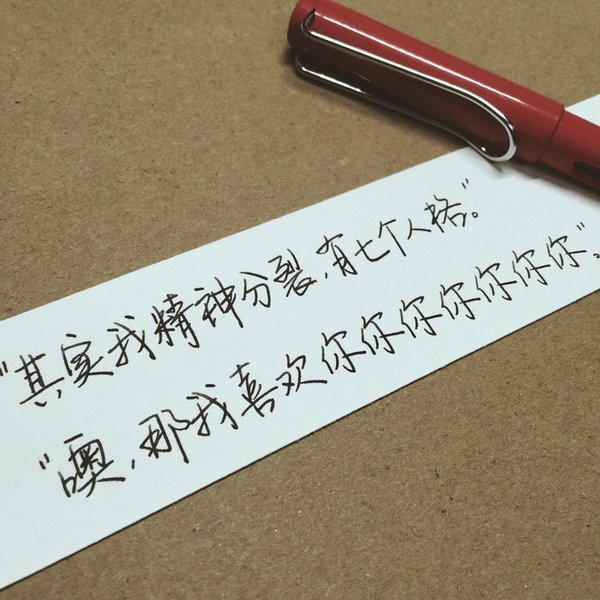 "其实我精神分裂,有七个人格"。
"噢,那我喜欢你你你你你你你"。